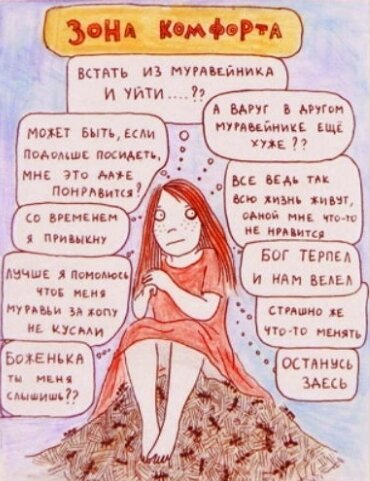 ЗОНА КОМФОРТА
ВСТАТЬ ИЗ МУРАВЕЙНИКА
И УЙТИ.....??
А ВДРУГ В ДРУГОМ
МУРАВЕЙНИКЕ ЕЩЁ
ХУЖЕ??
МОЖЕТ БЫТЬ, ЕСЛИ
ПОДОЛЬШЕ ПОСИДЕТЬ,
МНЕ ЭТО ДАЖЕ
ПОНРАВИТСЯ?
ВСЕ ВЕДЬ ТАК
ВСЮ ЖИЗНЬ ЖИВУТ,
ОДНОЙ МНЕ ЧТО-ТО
НЕ НРАВИТСЯ
СО ВРЕМЕНЕМ
Я ПРИВЫКНУ
БОГ ТЕРПЕЛ
И НАМ ВЕЛЕЛ
ЛУЧШЕ Я ПОМОЛЮСЬ
ЧТОБ МЕНЯ
МУРАВЬИ ЗА ЖОПУ
НЕ КУСАЛИ
СТРАШНО ЖЕ
ЧТО-ТО МЕНЯТЬ
БОЖЕНЬКА
ТЫ МЕНЯ
СЛЫШИШЬ??
ОСТАНУСЬ
ЗДЕСЬ